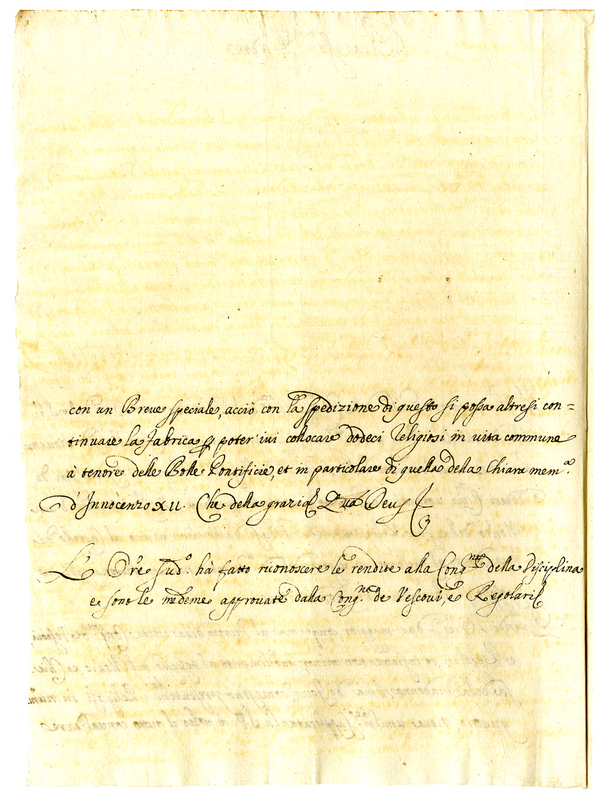 con un Breve speciale, acciò con la spedizione di questo si possa altresì con=
tinuare la fabrica, e poter ivi collocare dodeci Religiosi in vita commune
à tenore delle Bolle Pontificie, et in particolare di quella della Chiara mem.ª
d'Innocenzo XII. Che della grazia Deus
L' Ore Sud.º hà fatto riconoscere le rendite alla Cong.ne della Disciplina
e sono le medeme approvate dalla Cong.ne de Vescovi, e Regolari